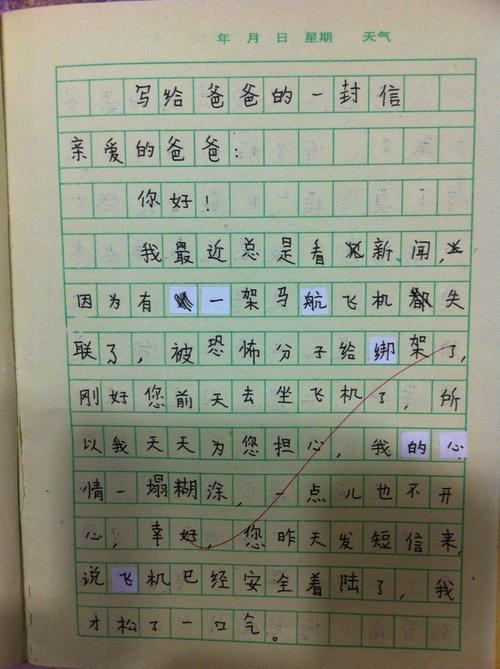 年 月 日 星期 天气
写给爸爸的一封信
亲爱的爸爸：
你好！
我最近总是看新闻，
因为有一架马航飞机失
联了，被恐怖分子给绑架了，
刚好您前天去坐飞机了，所
以我天天为您担心，我的心
情一塌糊涂，一点儿也不开
心，幸好，您昨天发短信来，
说飞机已经安全着陆了，我
才松了一口气。